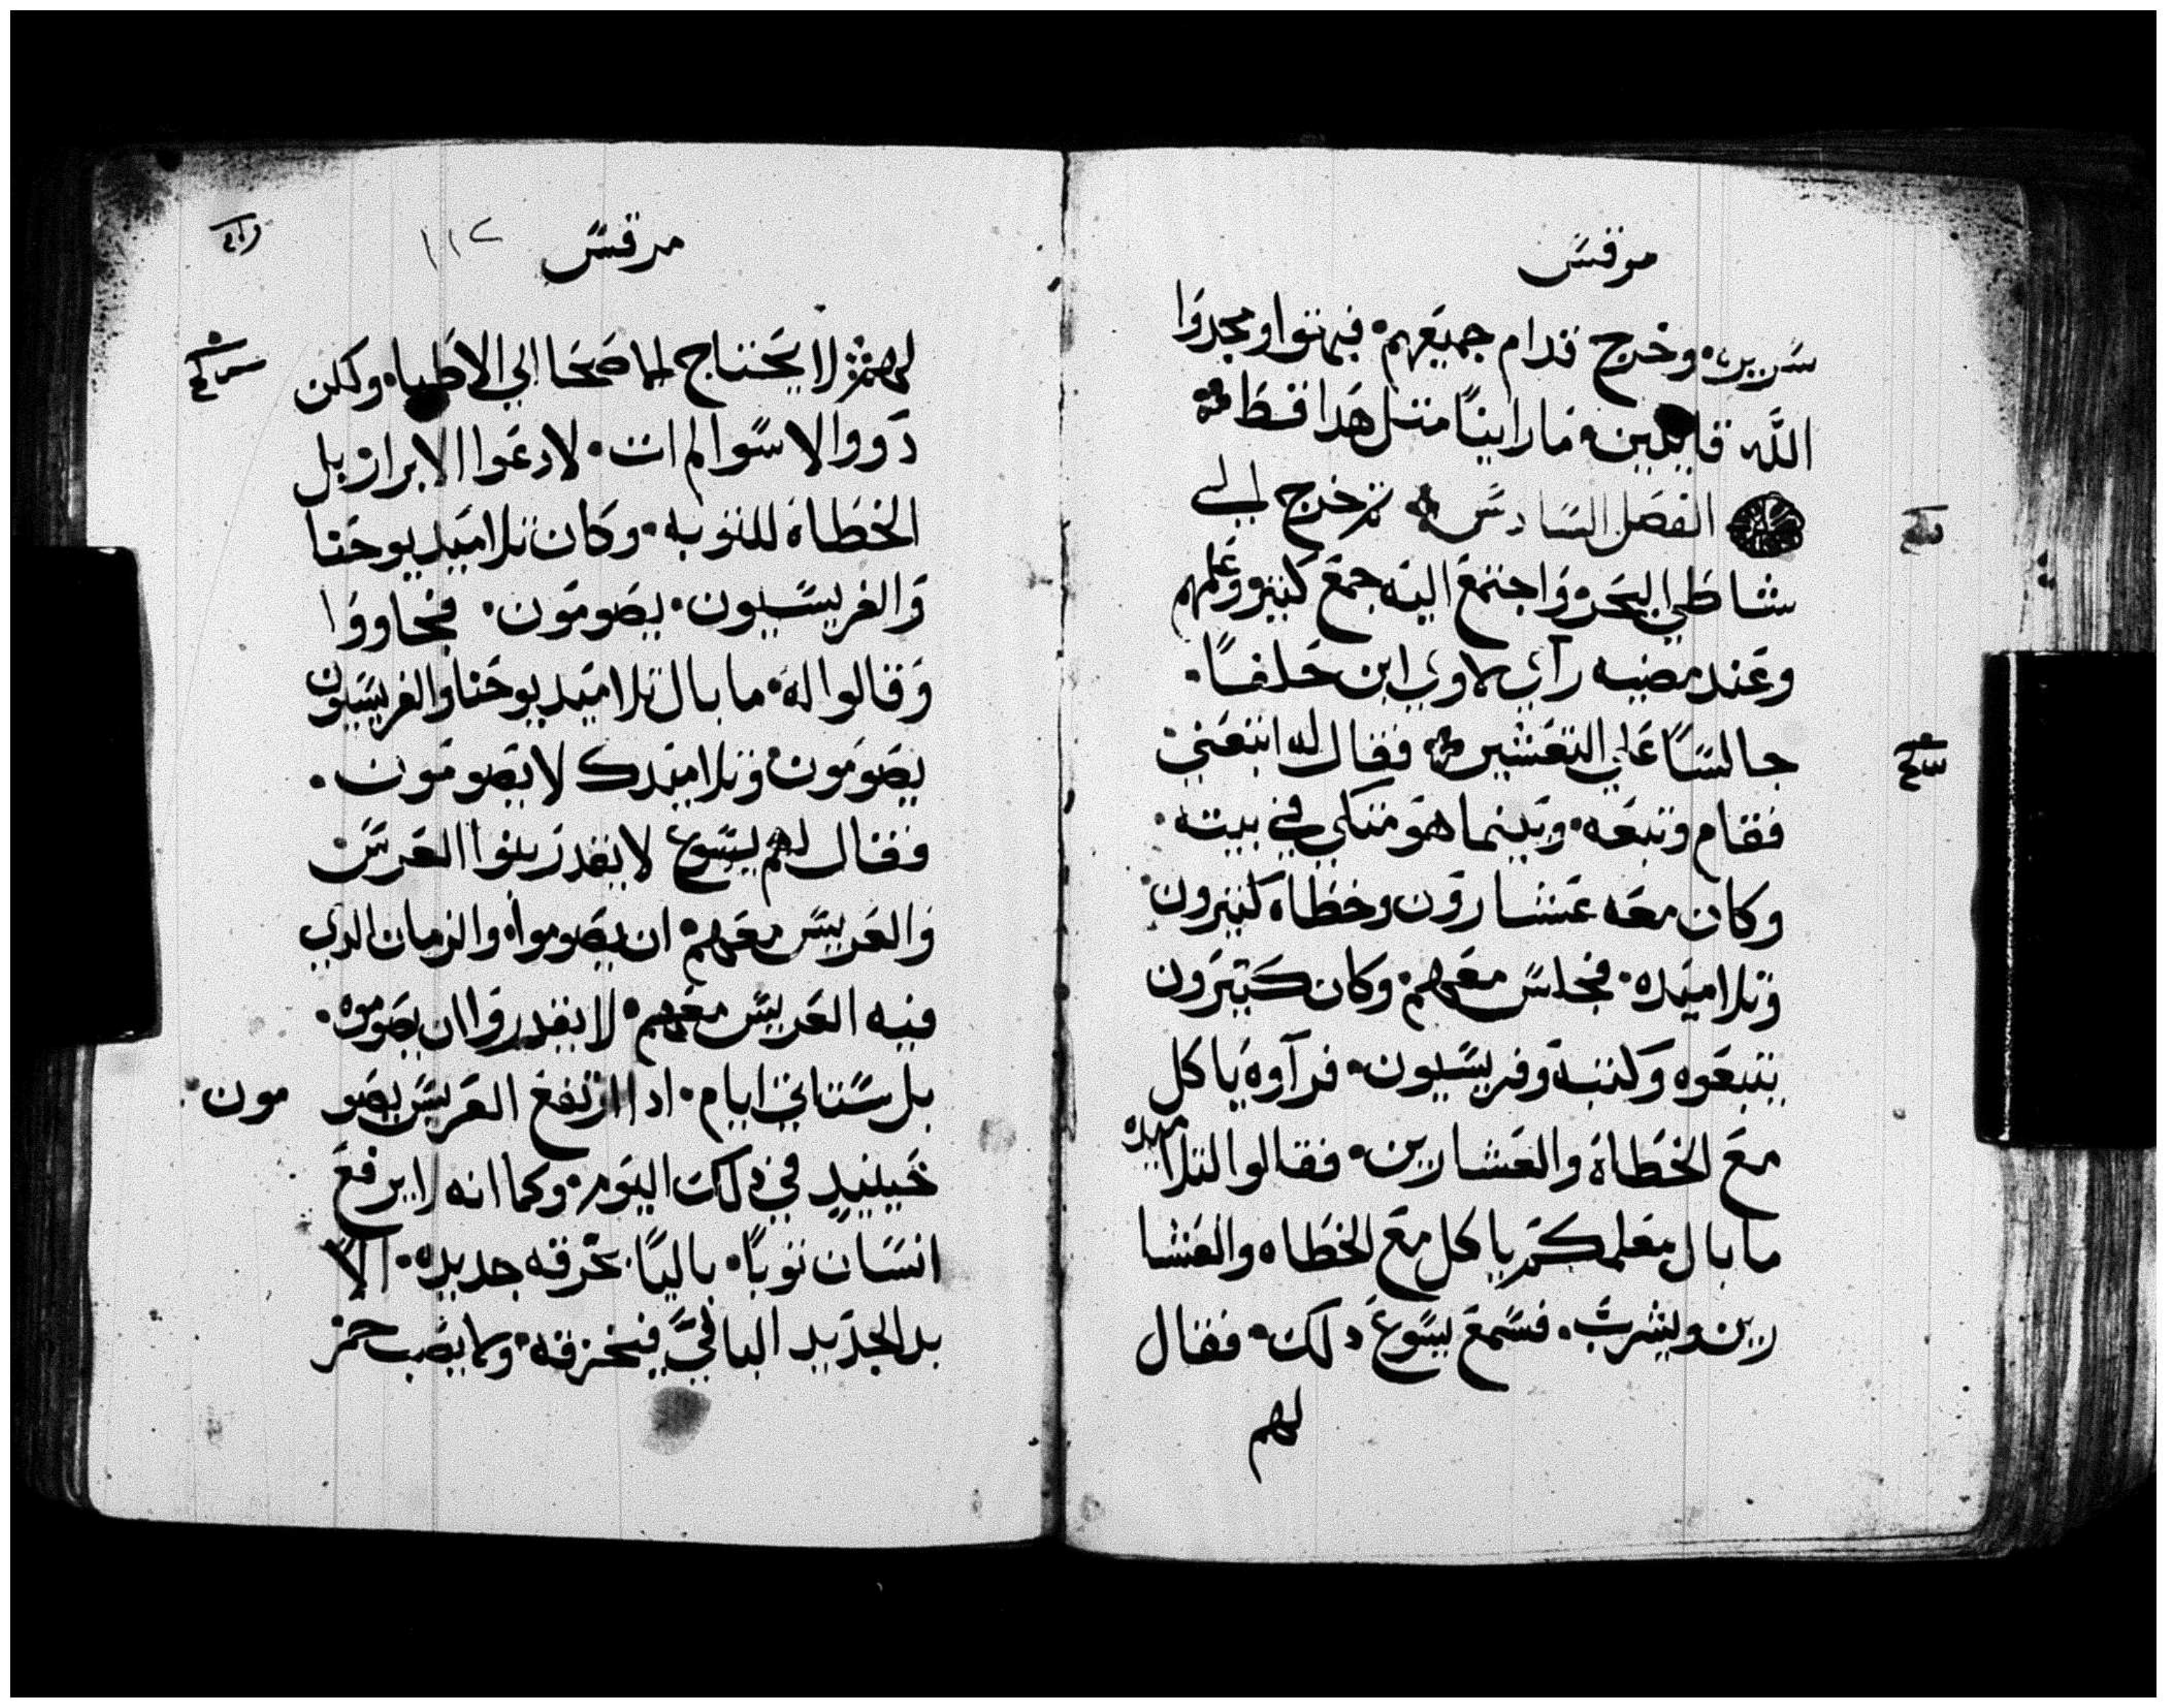 مرقس
سريره وخرج قدام جميعهم فبهتوا ومجدوا
الله قايلين ما راينا متل هدا قط
الفصل السادس تم خرج الي
شاطي البحر واجتمع اليه جمع كتير وعلمهم
وعند مضيه رآي لاوي ابن حلفا
جالسا علي التعشير فقال له اتبعني
فقام وتبعه وبينما هو متكي في بيته
وكان معه عشارون وخطاه كتيرون
وتلاميده فجلس معهم وكان كتيرون
يتبعوه وكتبه وفريسيون فرآوه ياكل
مع الخطاة والعشارين فقالوا لتلاميده
ما بال معلمكم ياكل مع الخطاه والعشا
رين ويشرب فسمع يسوع دلك فقال
لهم
مرقس ١١٢
لهم لا يحتاج الاصحا الي الاطباء ولكن
دووا الاسوا لم ات لادعوا الابرار بل
الخطاة للتوبه وكان تلاميد يوحنا
والفريسيون يصومون فجاووا
وقالوا له ما بال تلاميد يوحنا والفريسيون
يصومون وتلاميدك لا يصومون
فقال لهم يسوع لا يقدر بنوا العرس
والعريس معهم ان يصوموا والزمان الدي
فيه العريس معهم لا يقدروا ان يصوموه
بل ستاتي ايام ادا ارتفع العريس يصو مون
حينيد في دلك اليوم وكما انه لا يرفع
انسان توبا باليا بخرقه جديده الا
يد الجديد البالي فيخرقه ولا يصب خمر